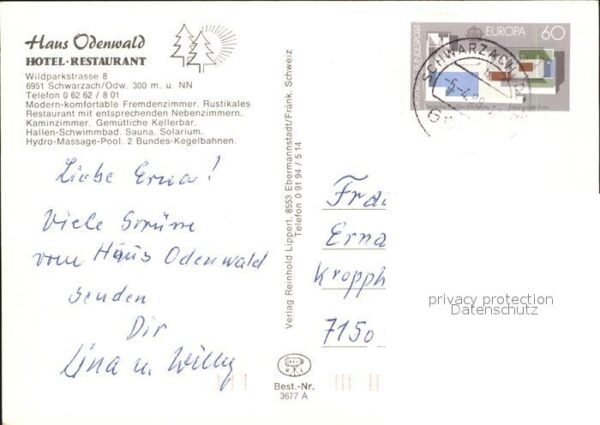 Haus Odenwald
HOTEL · RESTAURANT
Wildparkstrasse 8
6951 Schwarzach/Odw. 300 m. ü. NN
Telefon 0 62 62 / 8 01
Modern-komfortable Fremdenzimmer. Rustikales
Restaurant mit entsprechenden Nebenzimmern.
Kaminzimmer. Gemütliche Kellerbar.
Hallen-Schwimmbad. Sauna. Solarium.
Hydro-Massage-Pool. 2 Bundes-Kegelbahnen.
Liebe Erna!
Viele Grüsse
vom Haus Odenwald
senden
Dir
Lina u. Willy
Verlag Reinhold Lippert, 8553 Ebermannstadt/Fränk. Schweiz
Telefon 0 91 94 / 5 14
Best.-Nr.
3677 A
EUROPA 60
SCHWARZACH
Frau
Erna
Kropph
7150
privacy protection
Datenschutz